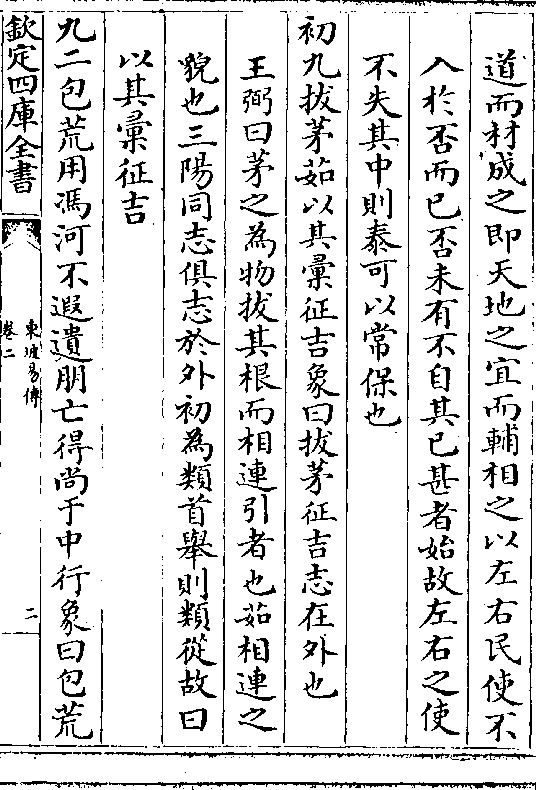 道而材成之即天地之宜而輔相之以左右民使不
入於否而已否未有不自其已甚者始故左右之使
不失其中則泰可以常保也
初九拔茅茹以其彚征吉象曰拔茅征吉志在外也
王弼曰茅之為物拔其根而相連引者也茹相連之
貌也三陽同志俱志於外初為類首舉則類從故曰
以其彚征吉
九二包荒用馮河不遐遺朋亡得尚于中行象曰包荒
欽定四庫全書
東坡易傳
卷二
二